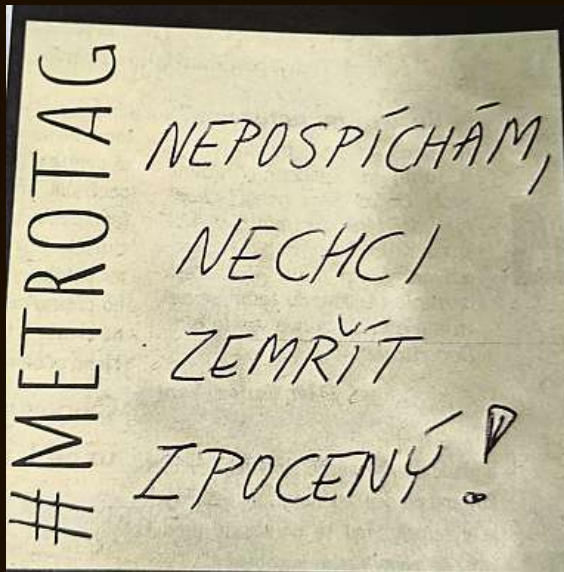 #METROTAG
NEPOSPÍCHÁM,
NECHCI
ZEMŘÍT
ZPOCENÝ!